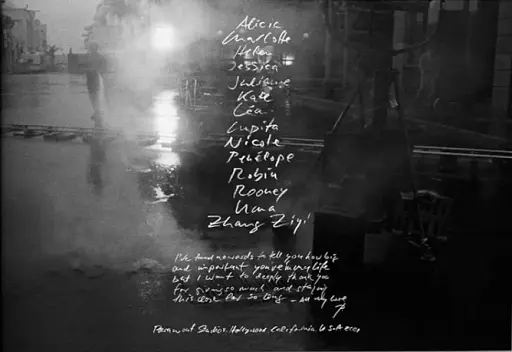 Alicia
Charlotte
Helen
Jessica
Julianne
Kate
Léa
Lupita
Nicole
Penélope
Robin
Rooney
Uma
Zhang Ziyi
I've found no words to tell you how big
and important you're in my life
but I want to deeply thank you
for giving so much and staying
this close for so long - All my love
P
Paramount Studios. Hollywood California